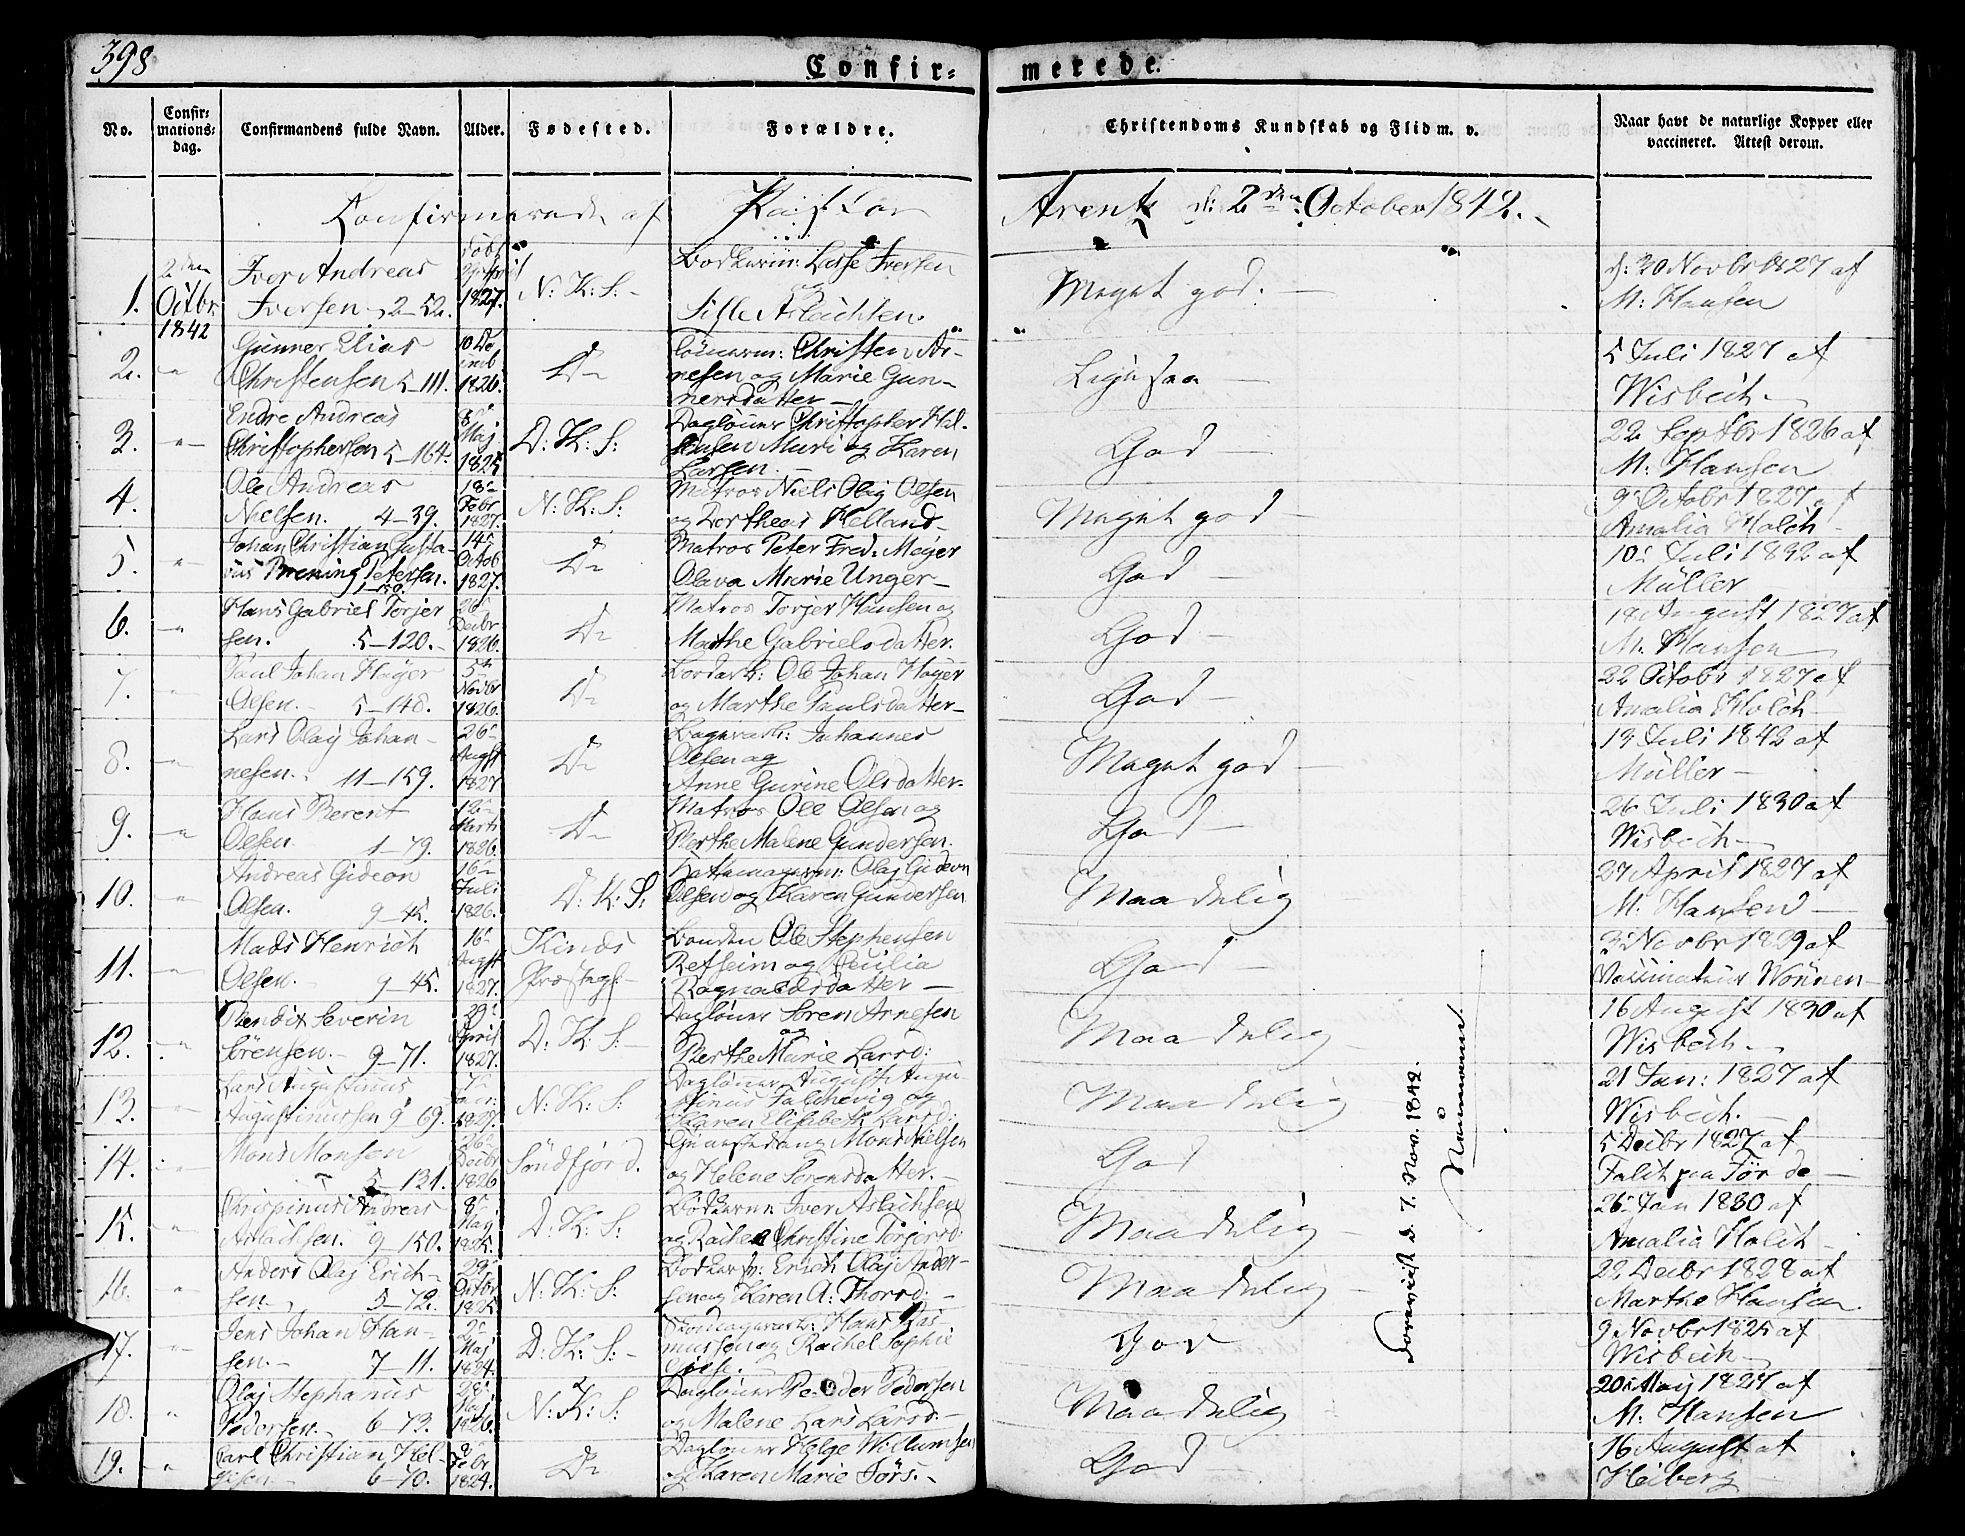 398
Confir-
merede.
No.
Confir-
mations-
dag.
Confirmandens fulde Navn.
Alder.
Fødested.
Forældre.
Christendoms Kundskab og Flid m. v.
Naar havt de naturlige Kopper eller
vaccineret. Attest derom.
Confirmerede af Pastor Arentz d: 2den October 1842.
1.
2den
Octbr
1842
Iver Andreas
Iversen 2-52.
1827.
N: K: S:
Lasse Iversen
og
Aslachsen
Meget god.
d: 30 Novbr 1827 af
M: Hansen
2.
Gunner Elias
Christensen 5-111.
10 De
cmb
1826.
Do
Christen Ar-
nesen og Marie Gun-
nersdatter
Ligesaa
5 Juli 1827 af
Wisbech
3.
Endre Andreas
Christophersen 5-164.
8
Maj
1825
D: K: S:
Dagløner Christopher
og Karen
Larsen.
God
22 Septbr 1826 af
M: Hansen
4.
Ole Andreas
Nielsen. 4-39.
18
Febr
1827.
N: K: S:
Matros Niels Olsen
og Dorthea Helland
Meget god
9 Octobr 1827 af
Amalia Holch
5.
Johan Christian Gusta-
vus Brening Petersen.
1-58.
14
Octob
1827.
Do
Matros Peter Fred. Meyer
Olava Marie Unger
God
10 Juli 1832 af
Müller
6.
Hans Gabriel Torjer
sen. 5-120.
26
Decbr
1826.
Do
Matros Torjer Hansen og
Marthe Gabrielsdatter.
God
18 August 1827 af
M. Hansen
7.
Paul Johan Høyer
Olsen. 5-148.
5te
Novbr
1826.
Do
Ole Johan Høyer
og Marthe Paulsdatter
God
22 Octobr 1827 af
Amalia Holch
8.
Lars Olaj Johan-
nesen. 11-159.
26
Augst
1827
Do
Johannes
Olsen og
Anne Gurine Olsdatter.
Meget god
13 Juli 1842 af
Müller
9.
Hans Berent
Olsen. 1-79.
12
Marts
1826.
Do
Matros Ole Olsen og
Berthe Malene Gundersen.
God
26 Juli 1830 af
Wisbech
10.
Andreas Gideon
Olsen. 9-45.
16
Juli
1826.
D: K: S:
Olaj Gideon
Olsen og Karen Gundersen
Maadelig
27 April 1827 af
M. Hansen
11.
Mads Henrich
Olsen. 9-45.
16
Augst
1827.
Kinds
Præstegj.
Bonden Ole Stephensen
Refseim og Cecilia
Ragnaldsdatter
God
3 Novbr 1839 af
12.
Bendix Severin
Sörensen. 9-71.
29
April
1827.
D: K: S:
Dagløner Sören Arnesen
og
Berthe Marie Larsd:
Maadelig
16 August 1830 af
Wisbech
13.
Lars Augustinus
Augustinussen 9 69.
1827.
N: K: S:
Dagløner August Augu
stinus Falchevig og
Karen Elisabeth Larsd:
Maadelig
21 Jan: 1827 af
Wisbech.
14.
Mons Monsen
5-131.
26
Decbr
1826
Söndfjord.
Mons Nielsen
og Helene Sörensdatter.
God
5 Decbr 1827 af
Falch paa Förde
15.
Chrispinus Andreas
Aslachsen. 9-150.
8
Maj
1825.
D: K: S:
Bödkerm: Iver Aslachsen
og Rachel Christine Torjersd:
Maadelig
26 Jan 1830 af
Amalia Holch
16.
Anders Olaj Erich-
sen. 5-72.
29
Octbr
1825
N: K: S:
Erich Olaj Ander-
sen og Karen A: Thorsd:
Maadelig
22 Decbr 1828 af
Marthe Hansen
17.
Jens Johan Han-
sen. 7-11.
2
Maj
1824.
D: K: S:
Hans Ras-
mussen og Rachel Sophie
God
9 Novbr 1825 af
Wisbech
18.
Olaj Stephanus
Pedersen. 6-73.
28
1826.
N: K: S:
Dagløner Peder Pedersen
og Malene Lars Larsd:
Maadelig
20 Maj 1827 af
M. Hansen
19.
Carl Christian Hel-
gesen 6-70.
8
Febr
1824.
Do
Dagløner Helge Willumsen
og Karen Marie Törs.
God
16 August af
Heiberg
Forevist d. 7. Nov. 1842.
Neumann